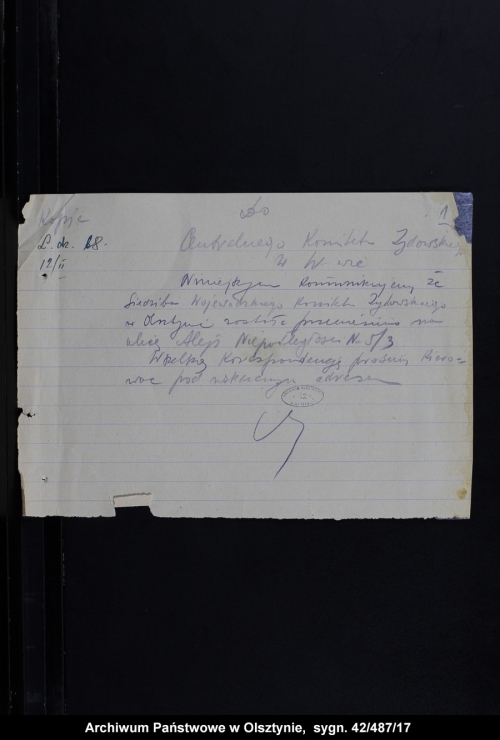 Kopja
Do
1
L. dz. 68.
12/II
Centralnego Komitetu Żydowskiego
w W-wie
Niniejszym komunikujemy że
siedziba Wojewódzkiego Komitetu Żydowskiego
w Olsztynie została przeniesiona na
ulicę Aleję Niepodległości Nr 5/3
Wszelką korespondencję prosimy kiero-
wać pod wskazanym adresem
Archiwum Państwowe w Olsztynie, sygn. 42/487/17